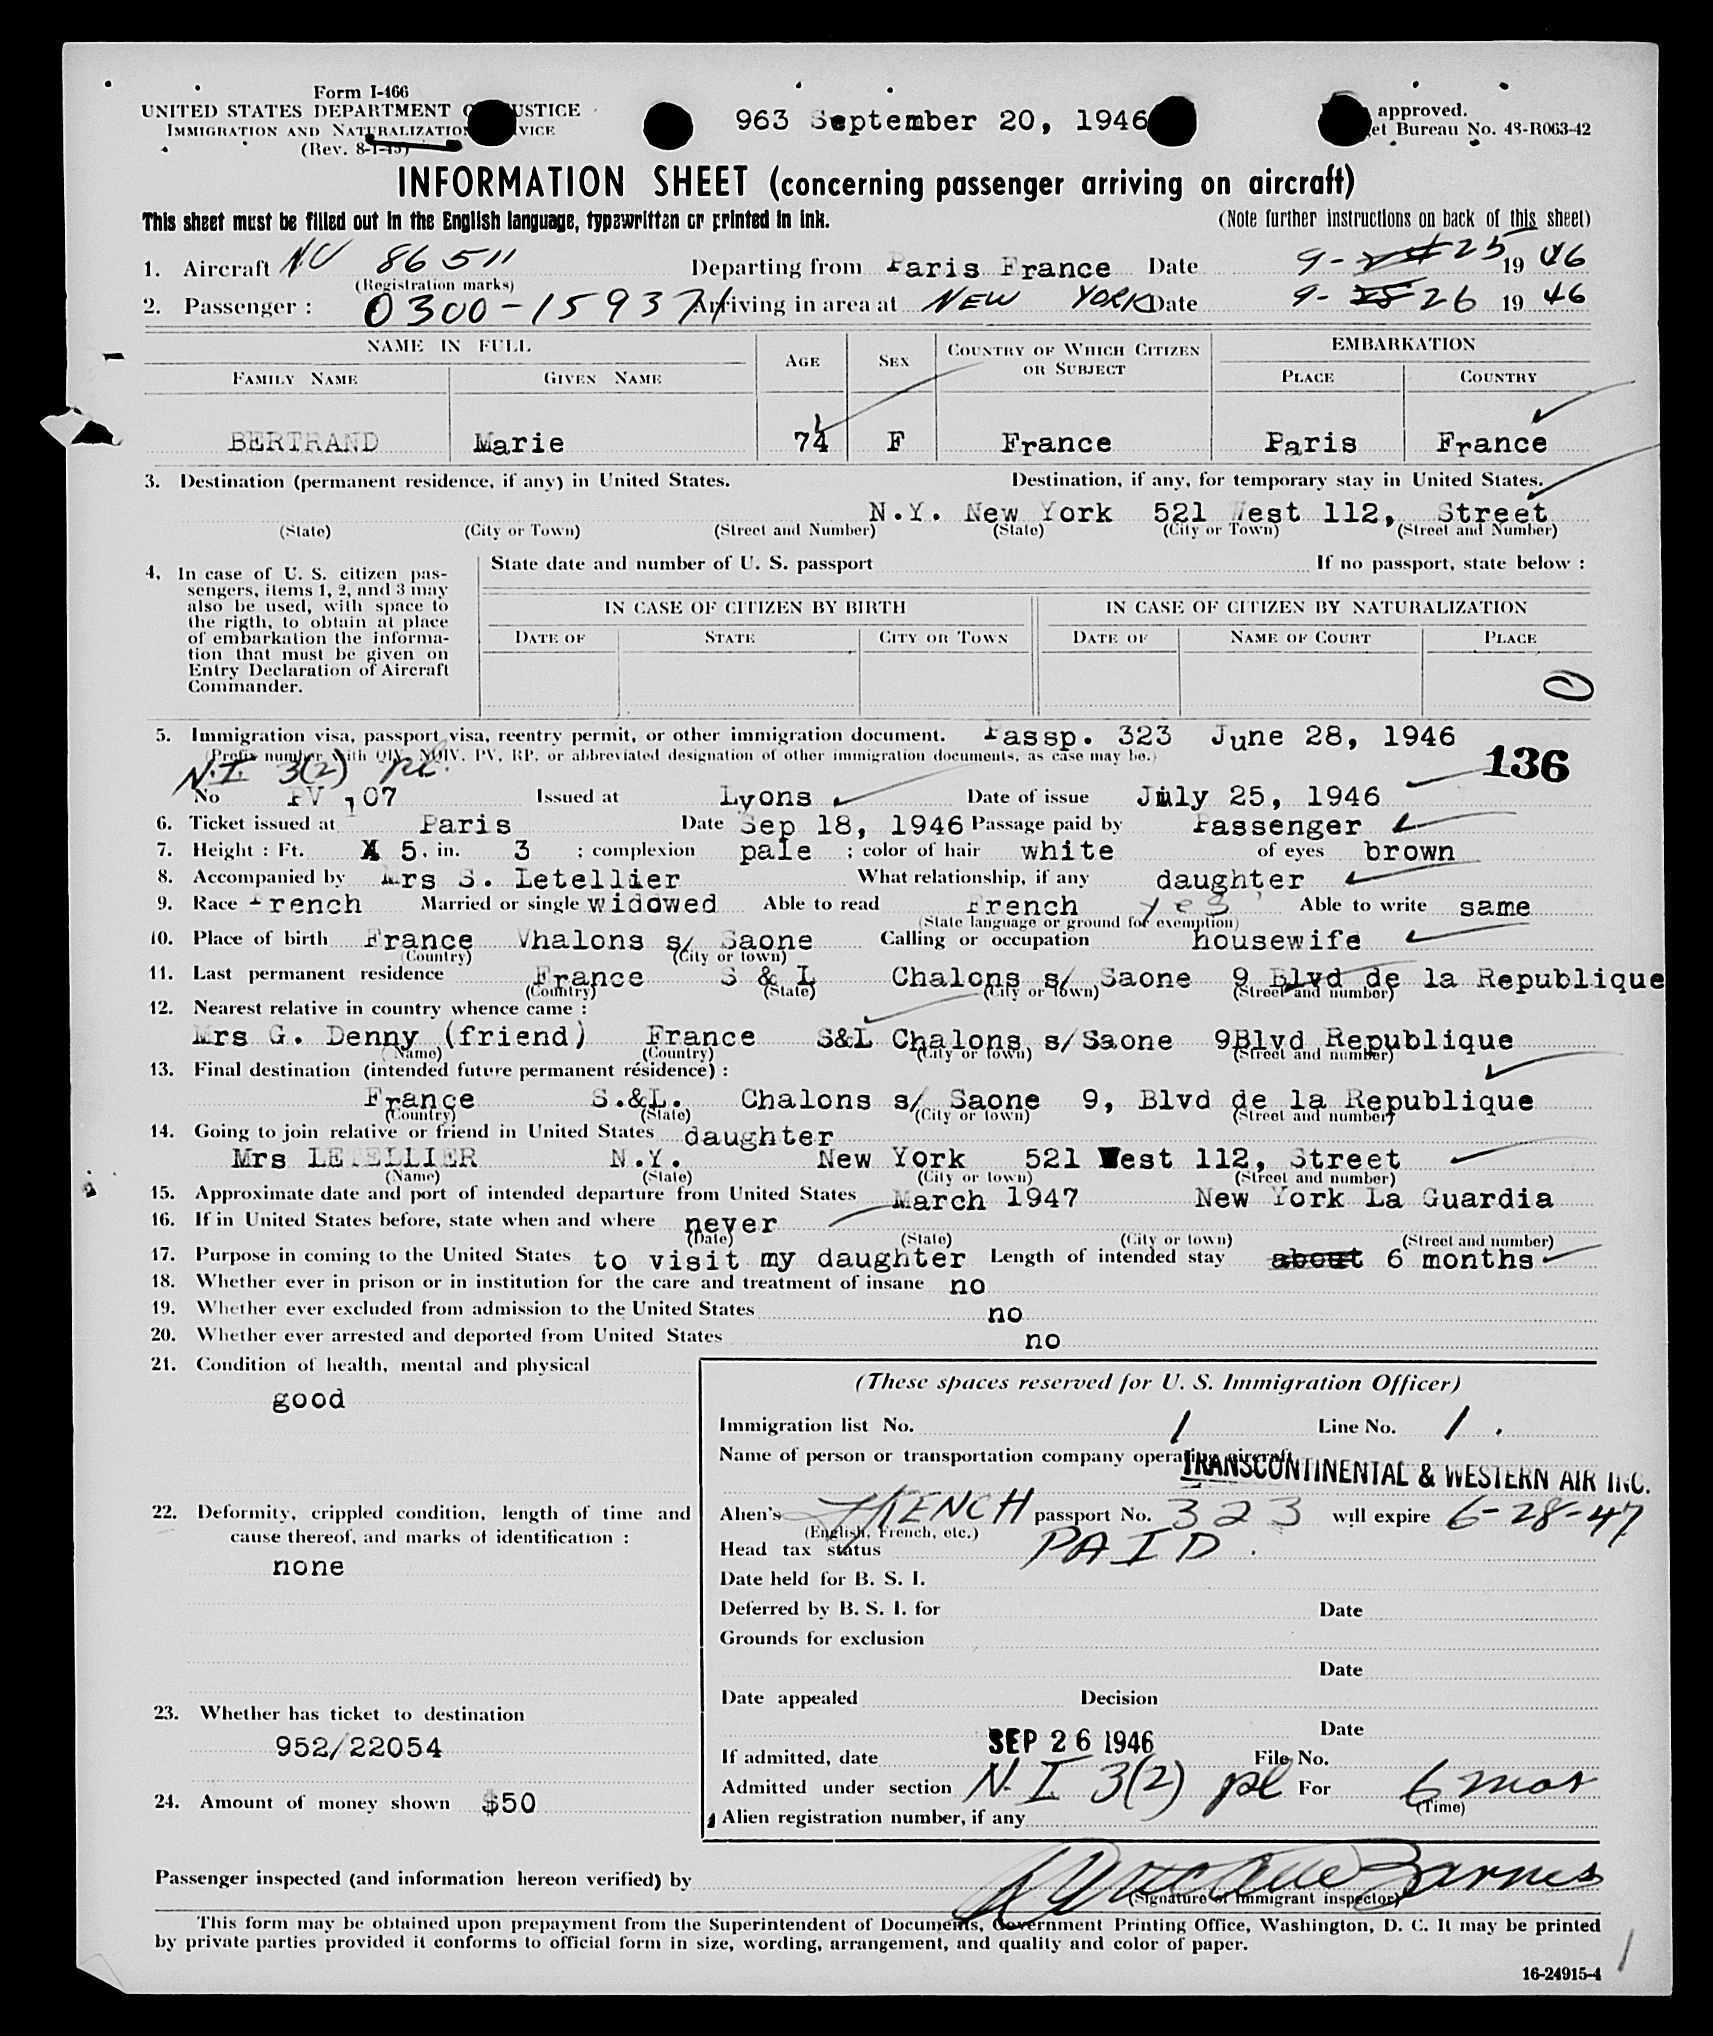 Form I-466
UNITED STATES DEPARTMENT JUSTICE
IMMIGRATION AND NATURALIZATION SERVICE
(Rev. 8-1-45)
963 September 20, 1946
approved.
Bureau No. 43-R063-42
INFORMATION SHEET (concerning passenger arriving on aircraft)
This sheet must be filled out in the English language, typewritten or printed in ink.
(Note further instructions on back of this sheet)
1. Aircraft NC 86511 Departing from Paris France Date 9- 25 1946
(Registration marks)
2. Passenger : 0300-15937 Arriving in area at NEW YORK Date 9- 25 26 1946
NAME IN FULL AGE SEX COUNTRY OF WHICH CITIZEN OR SUBJECT EMBARKATION
FAMILY NAME GIVEN NAME PLACE COUNTRY
BERTRAND Marie 74 F France Paris France
3. Destination (permanent residence, if any) in United States. Destination, if any, for temporary stay in United States.
N.Y. New York 521 West 112, Street
(State) (City or Town) (Street and Number) (State) (City or Town) (Street and Number)
4. In case of U. S. citizen pas-
sengers, items 1, 2, and 3 may
also be used, with space to
the rigth, to obtain at place
of embarkation the informa-
tion that must be given on
Entry Declaration of Aircraft
Commander.
State date and number of U. S. passport If no passport, state below :
IN CASE OF CITIZEN BY BIRTH IN CASE OF CITIZEN BY NATURALIZATION
DATE OF STATE CITY OR TOWN DATE OF NAME OF COURT PLACE
5. Immigration visa, passport visa, reentry permit, or other immigration document. Passp. 323 June 28, 1946
(Prefix number with QIV, NQIV, PV, RP, or abbreviated designation of other immigration documents, as case may be.)
N.I. 3(2) pl.
136
No PV 107 Issued at Lyons Date of issue July 25, 1946
6. Ticket issued at Paris Date Sep 18, 1946 Passage paid by Passenger
7. Height : Ft. 5. in. 3 ; complexion pale ; color of hair white of eyes brown
8. Accompanied by Mrs S. Letellier What relationship, if any daughter
9. Race French Married or single widowed Able to read French yes Able to write same
(State language or ground for exemption)
10. Place of birth France Vhalons s/ Saone Calling or occupation housewife
(Country) (City or town)
11. Last permanent residence France S & L Chalons s/ Saone 9 Blvd de la Republique
(Country) (State) (City or town) (Street and number)
12. Nearest relative in country whence came :
Mrs G. Denny (friend) France S&L Chalons s/Saone 9Blvd Republique
(Name) (Country) (City or town) (Street and number)
13. Final destination (intended future permanent résidence) :
France S.&L. Chalons s/ Saone 9, Blvd de la Republique
(Country) (State) (City or town) (Street and number)
14. Going to join relative or friend in United States daughter
Mrs LETELLIER N.Y. New York 521 West 112, Street
(Name) (State) (City or town) (Street and number)
15. Approximate date and port of intended departure from United States March 1947 New York La Guardia
16. If in United States before, state when and where never
(Date) (State) (City or town) (Street and number)
17. Purpose in coming to the United States to visit my daughter Length of intended stay about 6 months
18. Whether ever in prison or in institution for the care and treatment of insane no
19. Whether ever excluded from admission to the United States no
20. Whether ever arrested and deported from United States no
21. Condition of health, mental and physical
good
22. Deformity, crippled condition, length of time and
cause thereof, and marks of identification :
none
23. Whether has ticket to destination
952/22054
24. Amount of money shown $50
(These spaces reserved for U. S. Immigration Officer)
Immigration list No. 1 Line No. 1.
Name of person or transportation company operating aircraft
TRANSCONTINENTAL & WESTERN AIR INC.
Alien's FRENCH passport No. 323 will expire 6-28-47
(English, French, etc.)
Head tax status PAID.
Date held for B. S. I.
Deferred by B. S. I. for Date
Grounds for exclusion
Date
Date appealed Decision
Date
If admitted, date SEP 26 1946 File No.
Admitted under section N.I. 3(2) pl For 6 mos
(Time)
Alien registration number, if any
Passenger inspected (and information hereon verified) by Barnes
(Signature of immigrant inspector)
This form may be obtained upon prepayment from the Superintendent of Documents, Government Printing Office, Washington, D. C. It may be printed
by private parties provided it conforms to official form in size, wording, arrangement, and quality and color of paper.
16-24915-4